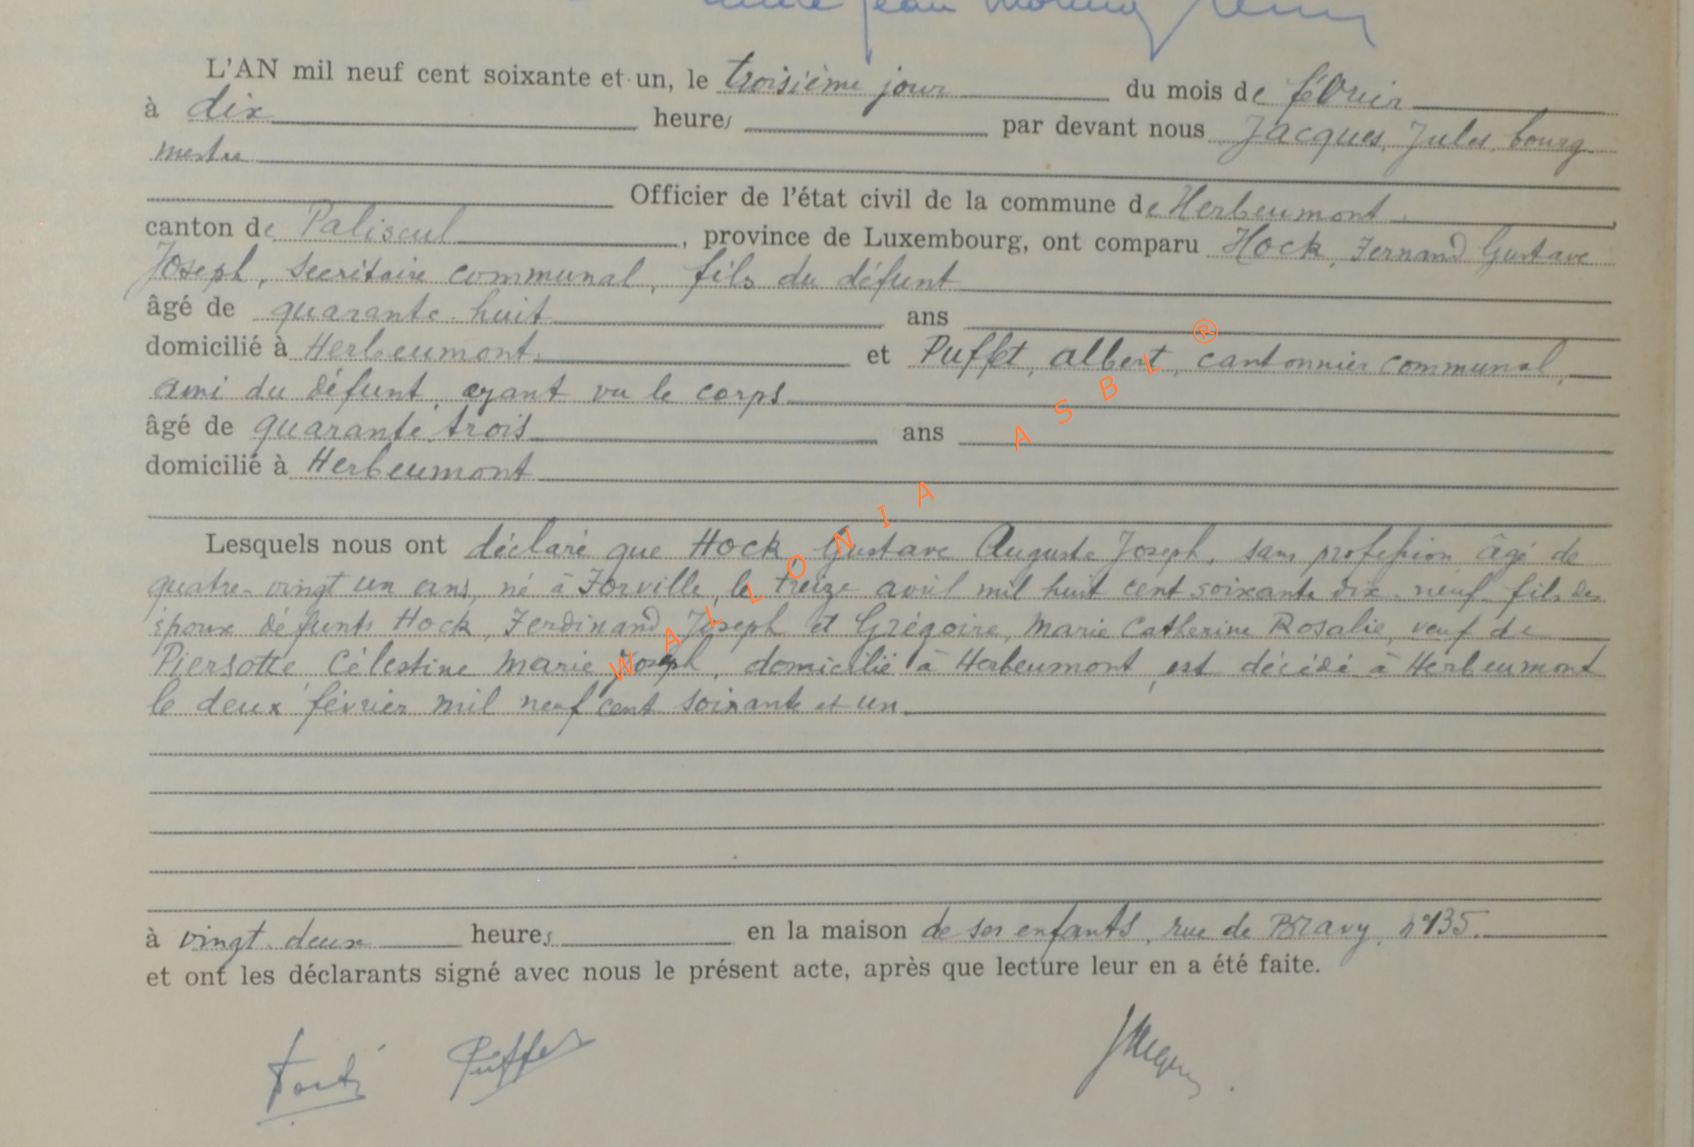 L'AN mil neuf cent soixante et un, le troisième jour du mois de février
à dix heures par devant nous Jacques, Jules, bourg
mestre
Officier de l'état civil de la commune de Herbeumont
canton de Paliseul, province de Luxembourg, ont comparu Hock, Fernand Gustave
Joseph, secrétaire communal, fils du défunt
âgé de quarante-huit ans
domicilié à Herbeumont et Puffet, Albert, cantonnier communal,
ami du défunt, ayant vu le corps
âgé de quarante-trois ans
domicilié à Herbeumont
Lesquels nous ont déclaré que Hock, Gustave Auguste Joseph, sans profession âgé de
quatre-vingt un ans, né à Forville, le treize avril mil huit cent soixante dix-neuf fils des
époux défunts Hock, Ferdinand Joseph et Grégoire, Marie Catherine Rosalie, veuf de
Piersotte Célestine Marie Joseph, domicilié à Herbeumont, est décédé à Herbeumont
le deux février mil neuf cent soixante et un
à vingt-deux heures en la maison de ses enfants, rue de Bravy, n°135.
et ont les déclarants signé avec nous le présent acte, après que lecture leur en a été faite.
Puffet
Jacques
WALLONIA ASBL ®